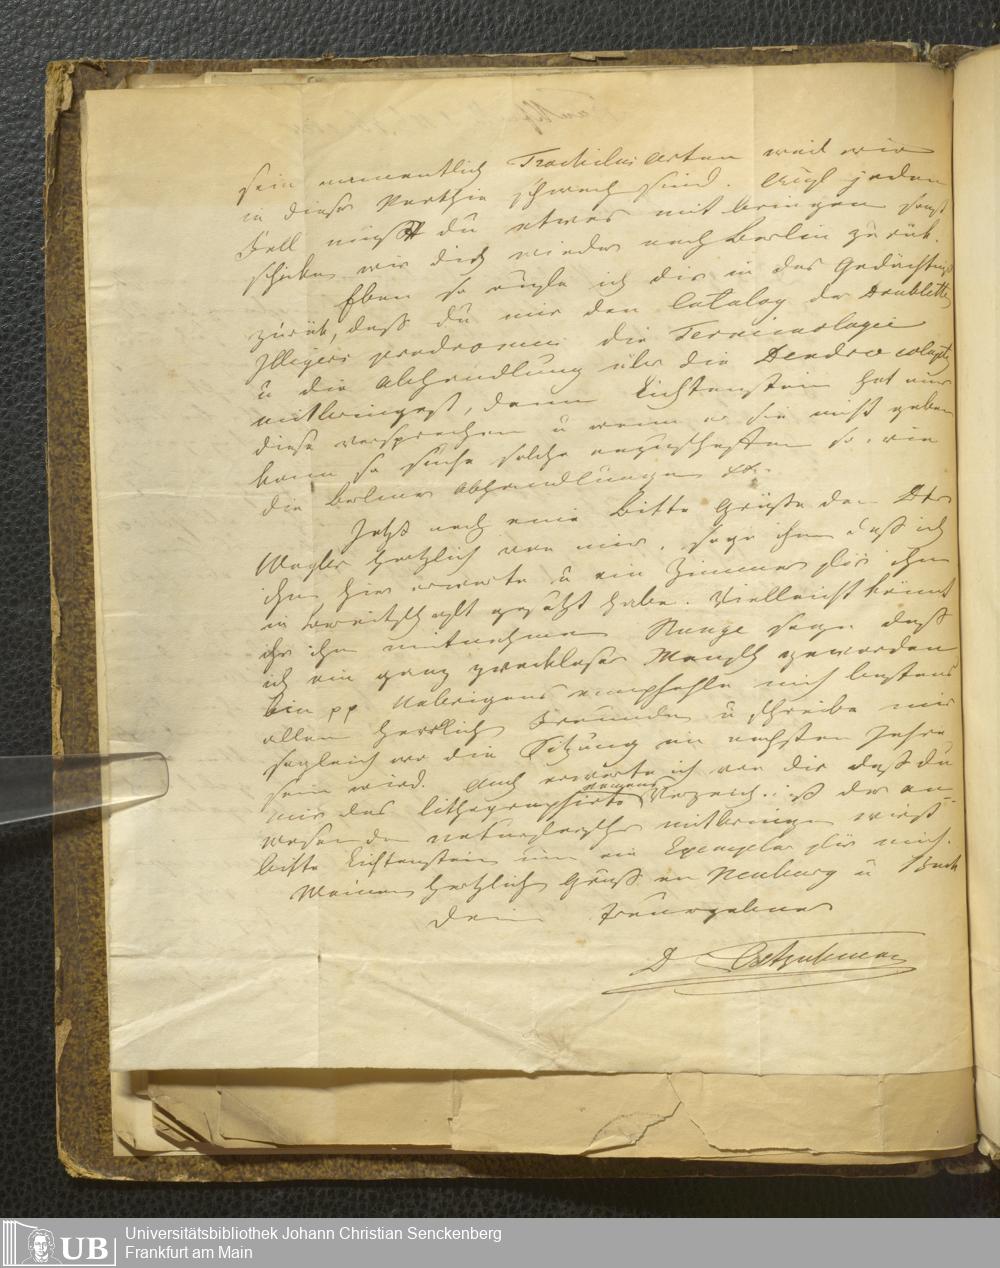 sein namentlich Trochilus arten weil wir
in dieser Parthie schwach sind. Auf jeden
Fall mußt du etwas mit bringen sonst
schicken wir dich wieder nach Berlin zurük.
Eben so rufe ich dir in das Gedächtniß
zurük, daß du mir den Catalog der Doubletten
Illigers prodromus die Terminologie
u die Abhandlung über die Dendrocolaptes
mitbringest, denn Lichtenstein hat mir
diese versprochen u wenn er sie nicht geben
kann so suche solche anzuschaffen so wie
die Berliner Abhandlungen
Jetzt noch eine Bitte Grüße den Dr
Wagler herzlich von mir, sage ihm daß ich
ihn hier erwarte u ein Zimmer für ihn
in Bereitschaft gesetzt habe. Vielleicht könnt
ihr ihn mitnehmen sage daß
ich ein ganz zweckloser Mensch geworden
bin pp Uebrigens empfehle mich bestens
allen Freunden u schreibe mir
sogleich wo die Sitzung im nächsten Jahre
sein wird. Auch erwarte ich von dir daß du
mir das lithographirte Namens Verzeichniß der an-
wesenden naturforscher mitbringen wirst
bitte Lichtenstein um ein Exemplar für mich.
Meinen herzlichen Gruß an Neuburg u
Dein
D Cretzschmar
Universitätsbibliothek Johann Christian Senckenberg
UB Frankfurt am Main